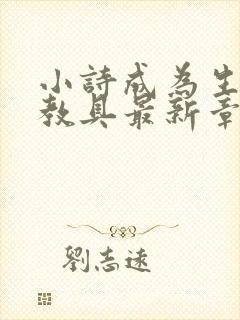 小詩成為生
教具最新章
劉志遠